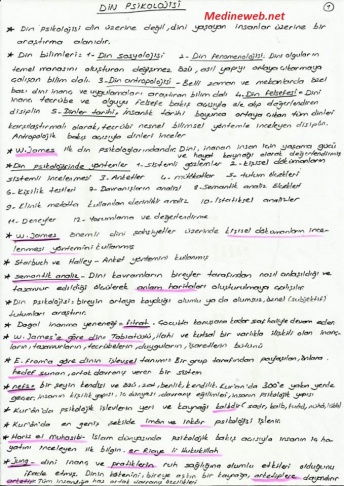 DİN PSİKOLOJİSİ
Medineweb.net
1
* Din psikolojisi din üzerine değil, dini yaşayan insanlar üzerine bir
araştırma alanıdır.
* Din bilimleri: 1- Din sosyolojisi 2- Din fenomenolojisi: Dini olguların
temel manasını oluşturan değişmez özü, asli yapıyı ortaya çıkarmaya
çalışan bilim dalı. 3- Din antropolojisi - Belli zaman ve mekanlarda
bazı dini inanç ve uygulamaları araştıran bilim dalı 4. Din felsefesi: Dini
inanç tecrübe ve olguyu felsefe bakış açısıyla ele alıp değerlendiren
disiplin 5- Dinler tarihi, insanlık tarihi boyunca ortaya çıkan tüm dinleri
karşılaştırmalı olarak, tecrübi nesnel bilimsel yöntemle inceleyen disiplin.
Antropolojik bakış açısıyla dinleri inceler
* W. James ilk din psikologlarındandır. Dini, inanan insan için yaşama gücü
ve hayat kaynağı olarak değerlendirmiş
* Din psikolojisinde yöntemler 1- sistemli gözlemler 2- Kişisel dokümanların
sistemli incelenmesi 3. Anketler 4. mülakatlar 5- tutum ölçekleri
6- Kişilik testleri 7- Davranışların analizi 8- Semantik analiz ölçekleri
9- Klinik metotta kullanılan derinlik analizi 10. İstatiksel analizler
11- Deneyler 12- Yorumlama ve değerlendirme
* W. James önemli dini şahsiyetler üzerinde kişisel dokümanların ince-
lenmesi yöntemini kullanmış
* Starbuch ve Halley - Anket yöntemini kullanmış
* Semantik analiz - Dini kavramların bireyler tarafından nasıl anlaşıldığı ve
tasavvur edildiği ölçülerek anlam haritaları oluşturulmaya çalışılır
* Din psikolojisi: bireyin ortaya koyduğu olumlu ya da olumsuz, öznel (subjektif)
tutumları araştırır.
* Doğal inanma yeneneği - fıtrat. Çocuğun
* W. James'e göre din: Tabiatüstü, ilahi ve kutsal bir varlıkla ilişkili olan inanç-
ların, tasavvurların, tecrübelerin, duyguların, işaretlerin bütünü
* E. From'a göre dinin işlevsel tanımı: Bir grup tarafından paylaşılan, onlara
hedef sunan, ortak davranış veren bir sistem
* nefs: bir şeyin kendisi ve özü, zat, benlik, kendilik. Kur'an'da 300'e yakın yerde
geçer, insanın kişilik yapısı, iç dünyası, davranış eğilimleri, insanın psikolojik yapısı
* Kur'an'da psikolojik işlevlerin yeri ve kaynağı kalbdir
* Kur'an'da en geniş şekilde iman ve inkâr psikolojisi işlenir
* Haris el muhasibi - İslam dünyasında psikolojik bakış açısıyla insanın iç ha-
yatını inceleyen ilk bilgin. er Riaye li Hukukillah
* Jung - dini inanç ve pratiklerin ruh sağlığına olumlu etkileri olduğunu
ifade etmiş. Dinin kökenini; bireye aşkın bir kaynağa, arketiplere dayandırır